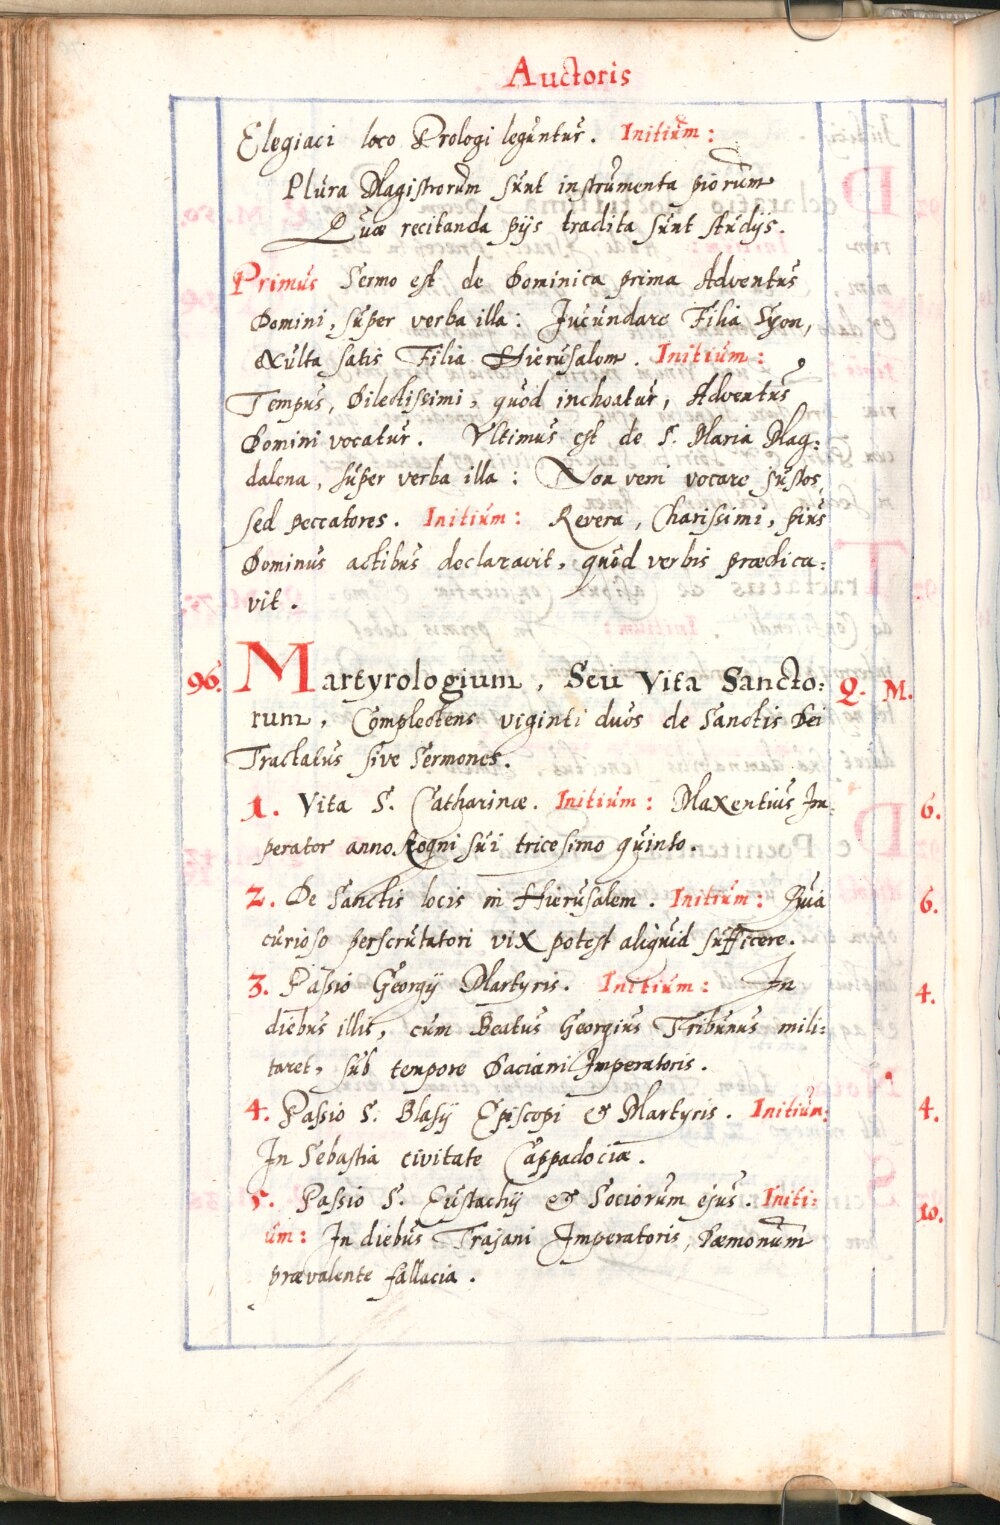 Auctoris
Elegiaci loco Prologi leguntur. Initium:
Plura Magistrorum sunt instrumenta piorum
Quæ recitanda pijs tradita sunt studijs.
Primus Sermo est de Dominica prima Adventus
Domini, super verba illa: Jucundare Filia Syon,
exulta satis Filia Hierusalem. Initium:
Tempus, Dilectissimi, quod inchoatur, Adventus
Domini vocatur. Ultimus est de S. Maria Mag:
dalena, super verba illa: Non veni vocare justos,
sed peccatores. Initium: Revera, Charissimi, pius
Dominus actibus declaravit, quod verbis prædica:
vit.
96. Martyrologium, Seu Vita Sancto: Q. M.
rum, Complectens viginti duos de Sanctis Dei
Tractatus sive Sermones.
1. Vita S. Catharinæ. Initium: Maxentius Im: 6.
perator anno Regni sui tricesimo quinto.
2. De Sanctis locis in Hierusalem. Initium: Quia 6.
curioso perscrutatori vix potest aliquid sufficere.
3. Passio Georgij Martyris. Initium: In 4.
diebus illis, cum Beatus Georgius Tribunus mili:
taret, sub tempore Daciani Imperatoris.
4. Passio S. Blasij Episcopi & Martyris. Initium: 4.
In Sebastia civitate Cappadociæ.
5. Passio S. Eustachij & Sociorum ejus. Initi: 10.
um: In diebus Trajani Imperatoris, Dæmonum
prævalente fallacia.